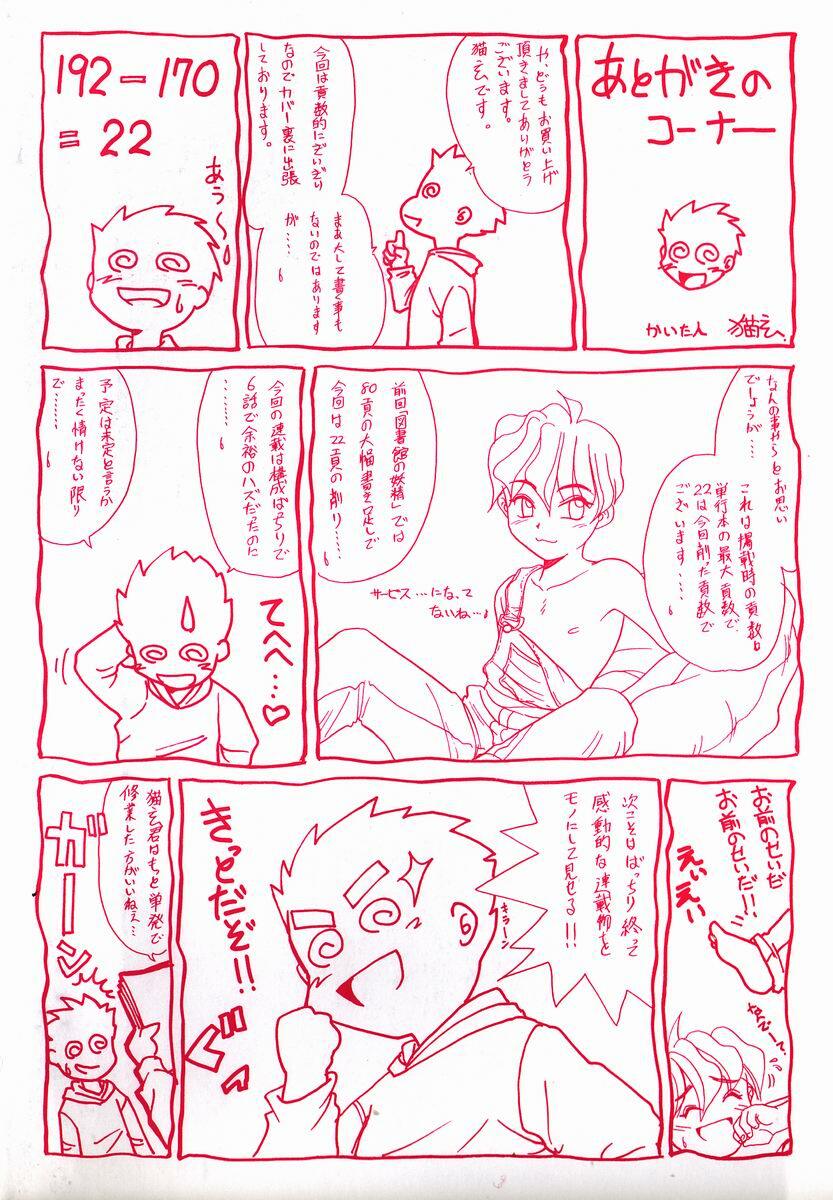 あとがきの
コーナー
かいた人 猫玄
や、どうもお買い上げ
頂きましてありがとう
ございます。
猫玄です。
今回は貢数的にぎりぎり
なのでカバー裏に出張
しております。
まあ大して書く事も
ないのではあります
が……。
192－170
＝22
あう〜
なんの事やらとお思い
でしょうが……
これは掲載時の貢数と
単行本の最大貢数で、
22は今回削った貢数で
ございます……。
サービス…になって
ないね…。
前回「図書館の妖精」では
80貢の大幅書き足しで
今回は22貢の削り……。
今回の連載は構成ばっちりで
6話で余裕のハズだったのに
………。
予定は未定と言うか
まったく情けない限り
で…。
てへへ…♡
お前のせいだ
お前のせいだ!!
えいえい
なんでーっ、
次こそはばっちり終って
感動的な連載物を
モノにして見せる!!
キラーン
きっとだぞ!!
ぐっ
猫玄君はもっと単発で
修業した方がいいねぇ…
ガーン